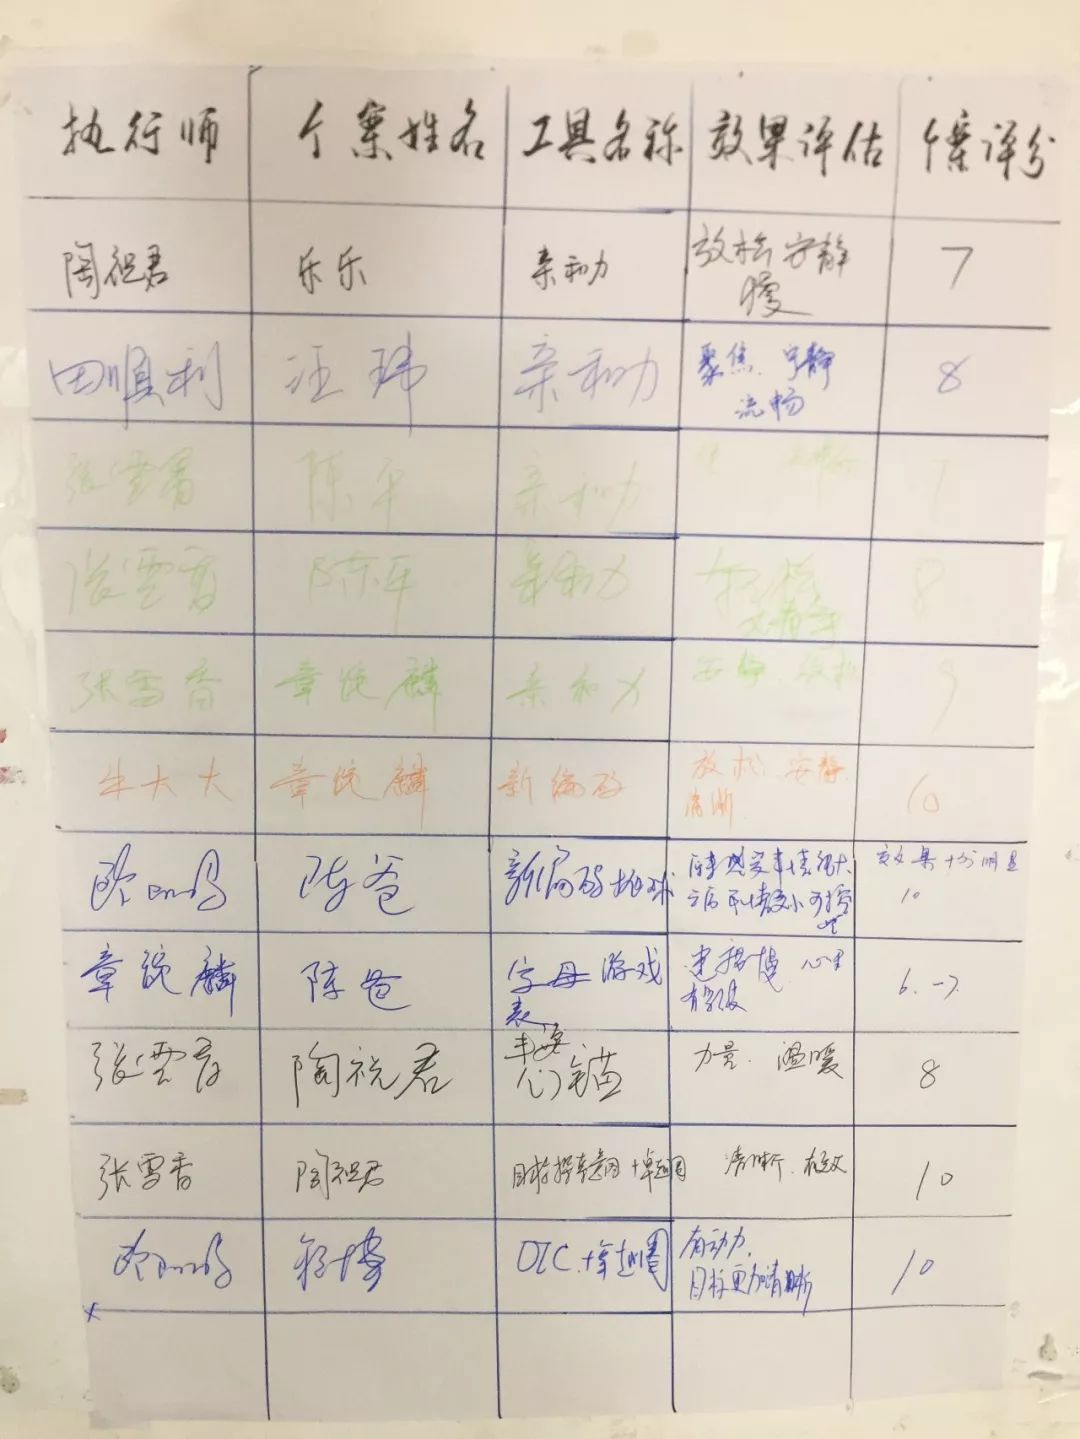 执行师 个案姓名 工具名称 效果评估 个案评分
陶祝君 乐乐 亲和力 放松 安静 7
慢
田顺利 汪玮 亲和力 聚焦、宁静 8
流畅
张雪香 陈平 亲和力 7
张雪香 陈平 亲和力 放松 8
张雪香 章统麟 亲和力 安静、放松 9
牛大大 章统麟 新编码 放松、安静 10
清晰
陈爸 新编码 效果十分明显
10
章统麟 陈爸 字母游戏 心里 6.-7
表
张雪香 陶祝君 心锚 力量、温暖 8
张雪香 陶祝君 卓越圈 清晰、有效 10
卓越圈 有动力, 10
目标更加清晰